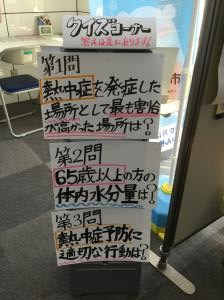 クイズコーナー
答えは裏にあります
第1問
熱中症を発症した
場所として最も割合
が高かった場所は?
第2問
65歳以上の方の
体内水分量は?
第3問
熱中症予防に
適切な行動は?
市